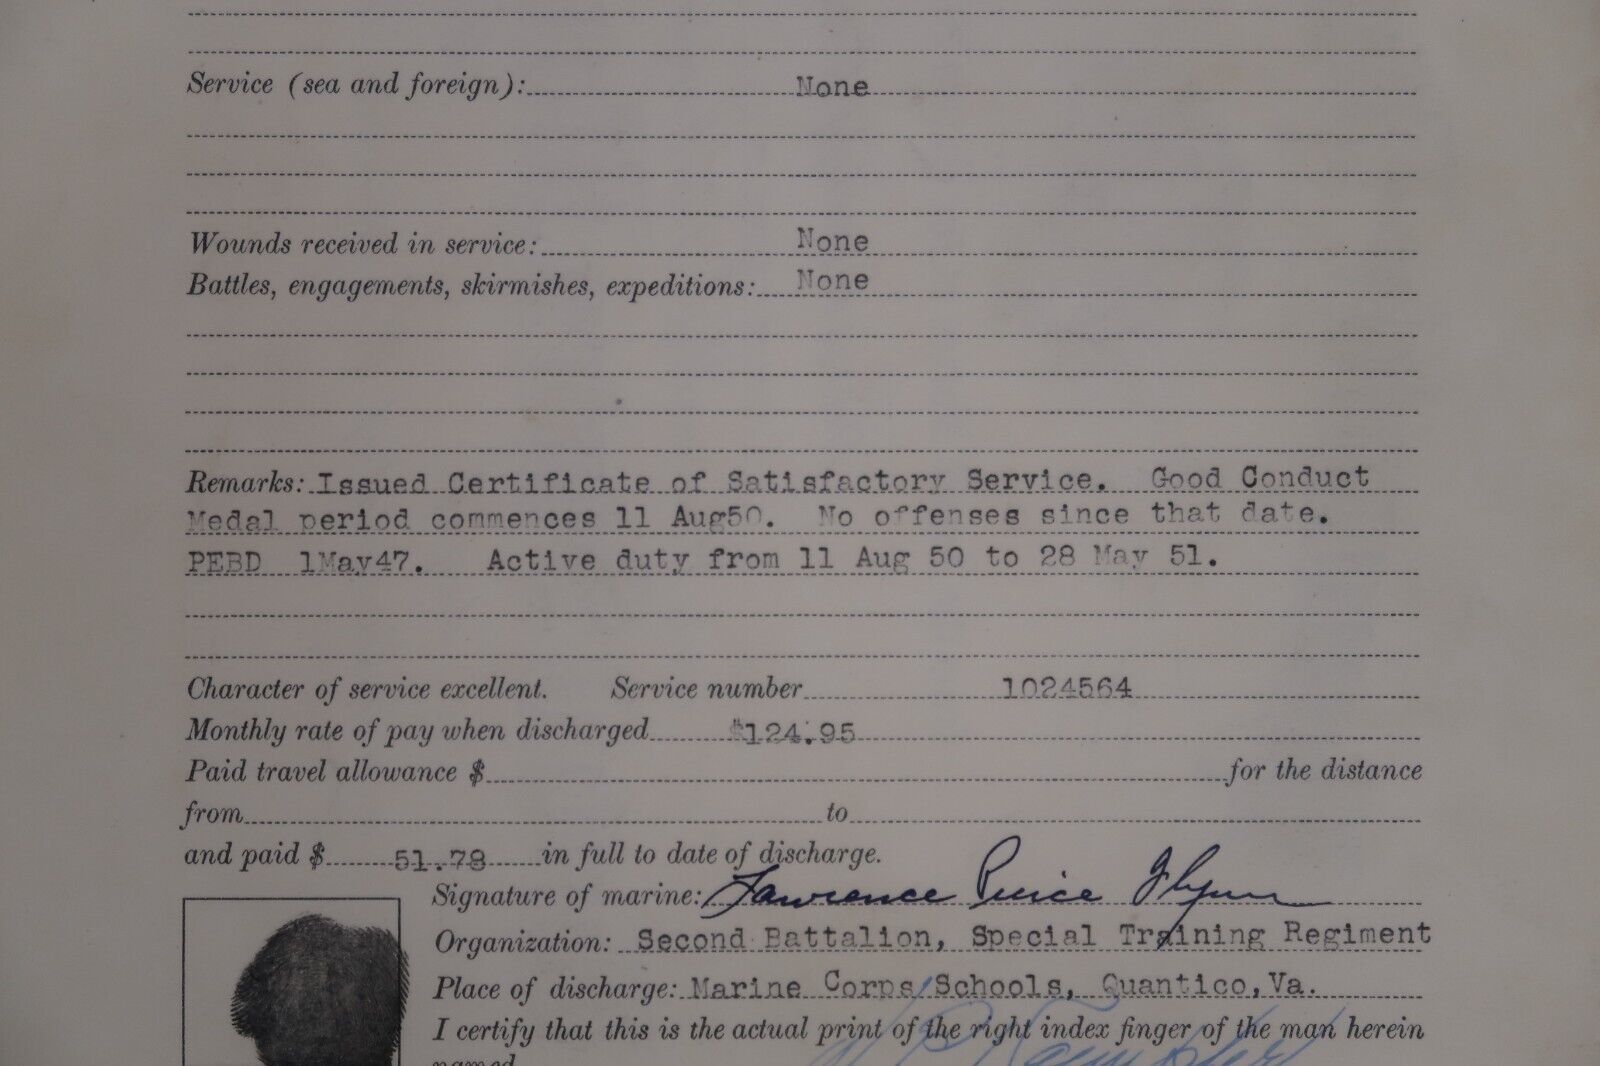 Service (sea and foreign): None
Wounds received in service: None
Battles, engagements, skirmishes, expeditions: None
Remarks: Issued Certificate of Satisfactory Service. Good Conduct
Medal period commences 11 Aug50. No offenses since that date.
PEBD 1May47. Active duty from 11 Aug 50 to 28 May 51.
Character of service excellent. Service number 1024564
Monthly rate of pay when discharged $124.95
Paid travel allowance $ for the distance
from to
and paid $ 51.78 in full to date of discharge.
Signature of marine: Lawrence Flynn
Organization: Second Battalion, Special Training Regiment
Place of discharge: Marine Corps Schools, Quantico, Va.
I certify that this is the actual print of the right index finger of the man herein
named